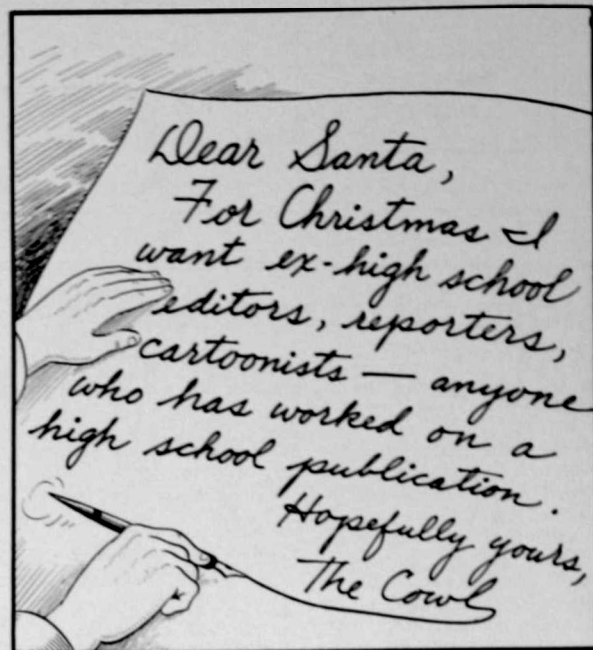 Dear Santa,
For Christmas I
want ex-high school
editors, reporters,
cartoonists — anyone
who has worked on a
high school publication.
Hopefully yours,
The Cowl